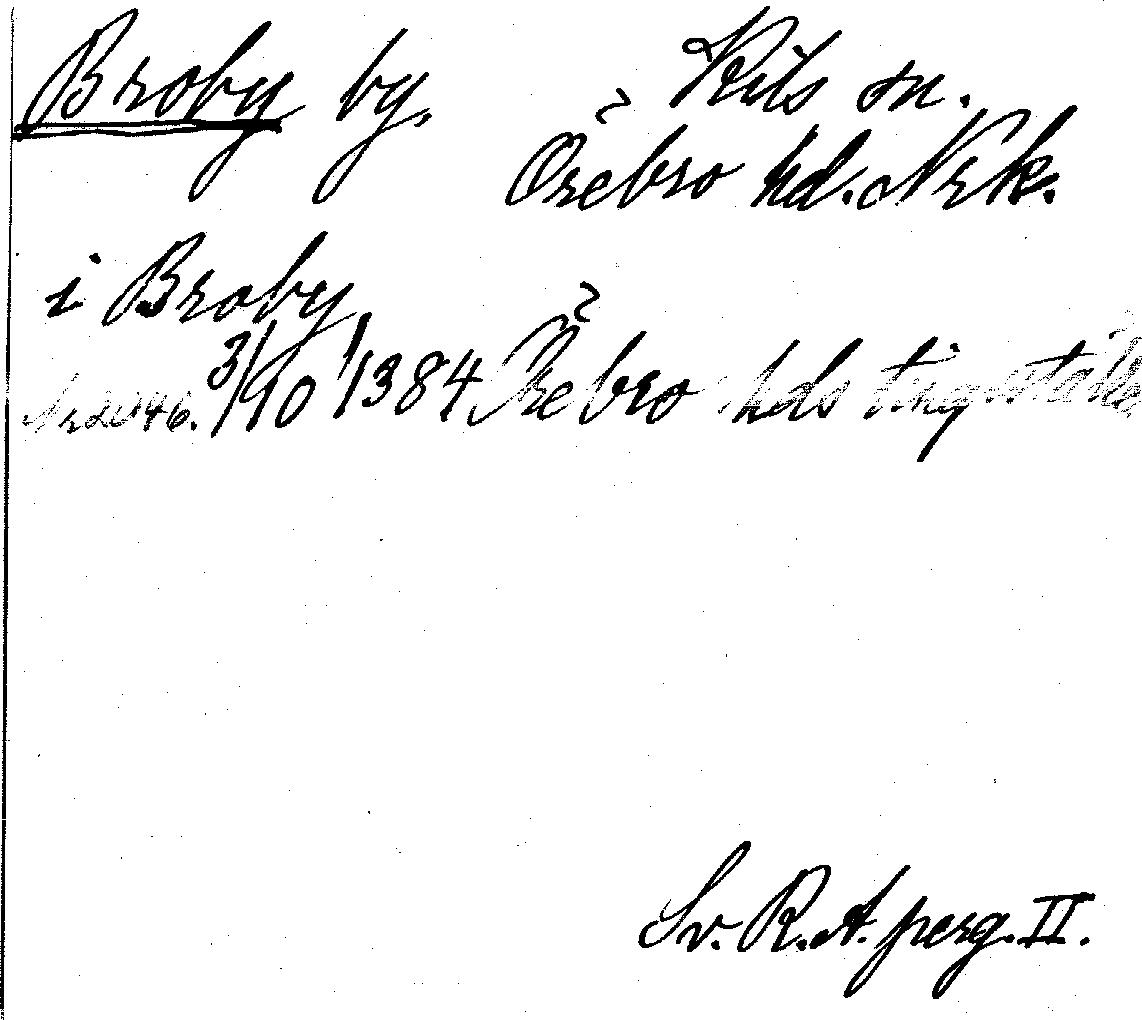 Broby by. Kils sn.
Örebro hd. Nrk.
i Broby
3/10 1384 Örebro hds tingställe
Sv. R.A. perg. II.